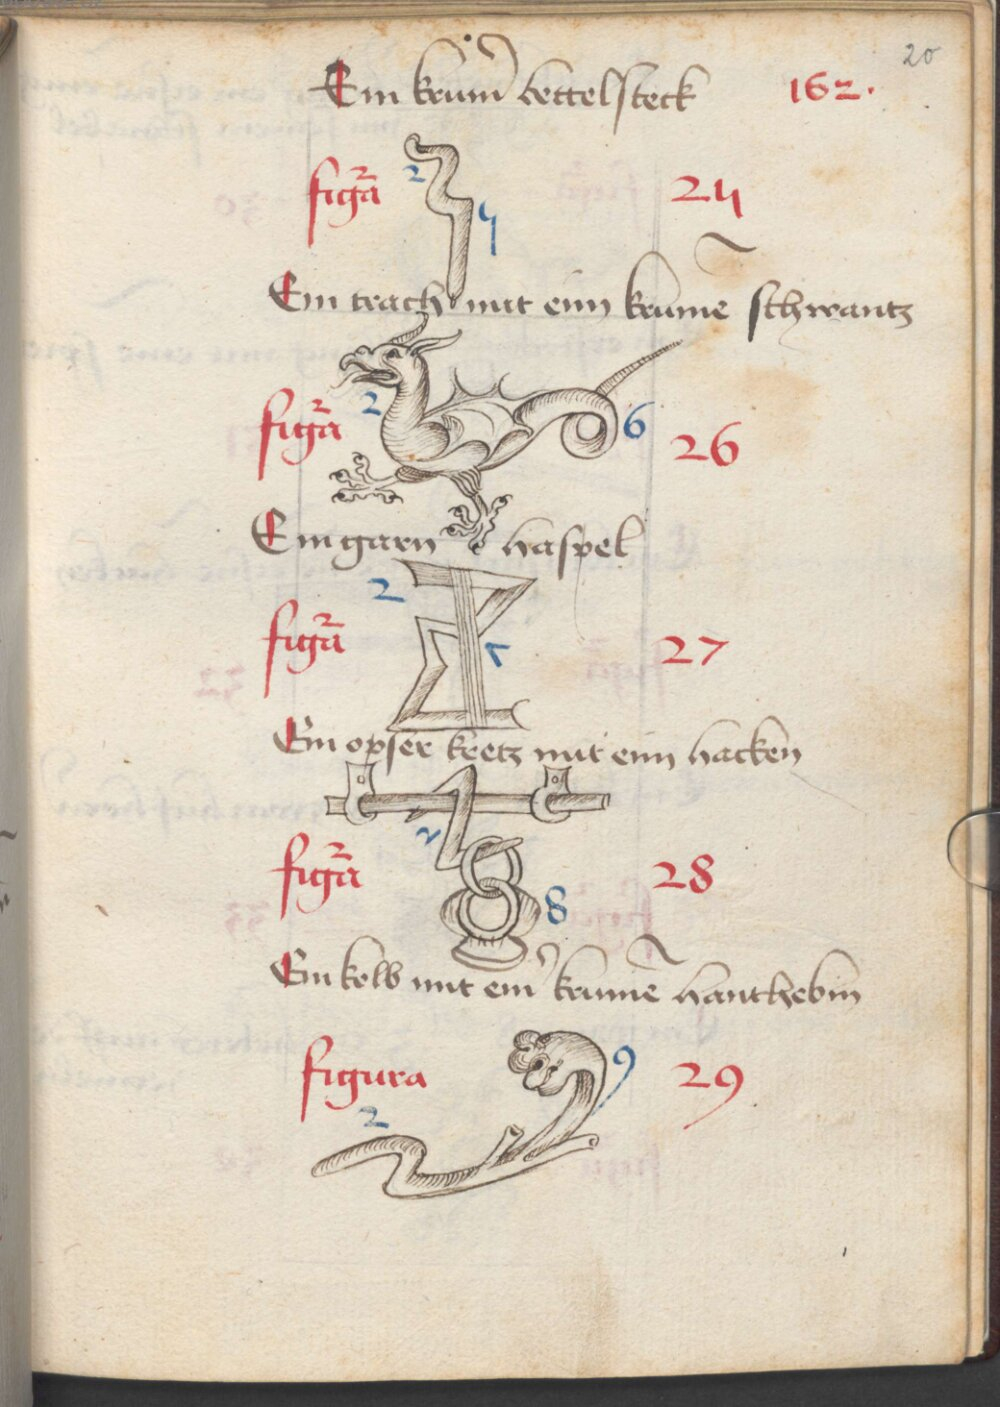 20
Ein krum̄ bettelsteck 162.
2
figa 24
4
Ein trach mit eim krume schwantz
2
figa 6 26
Ein garn haspel
2
figa 7 27
Ein opfer ketz mit eim hacken
2
figa 28
8
Ein kolb mit eim krume hanthebin
9
figura 29
2